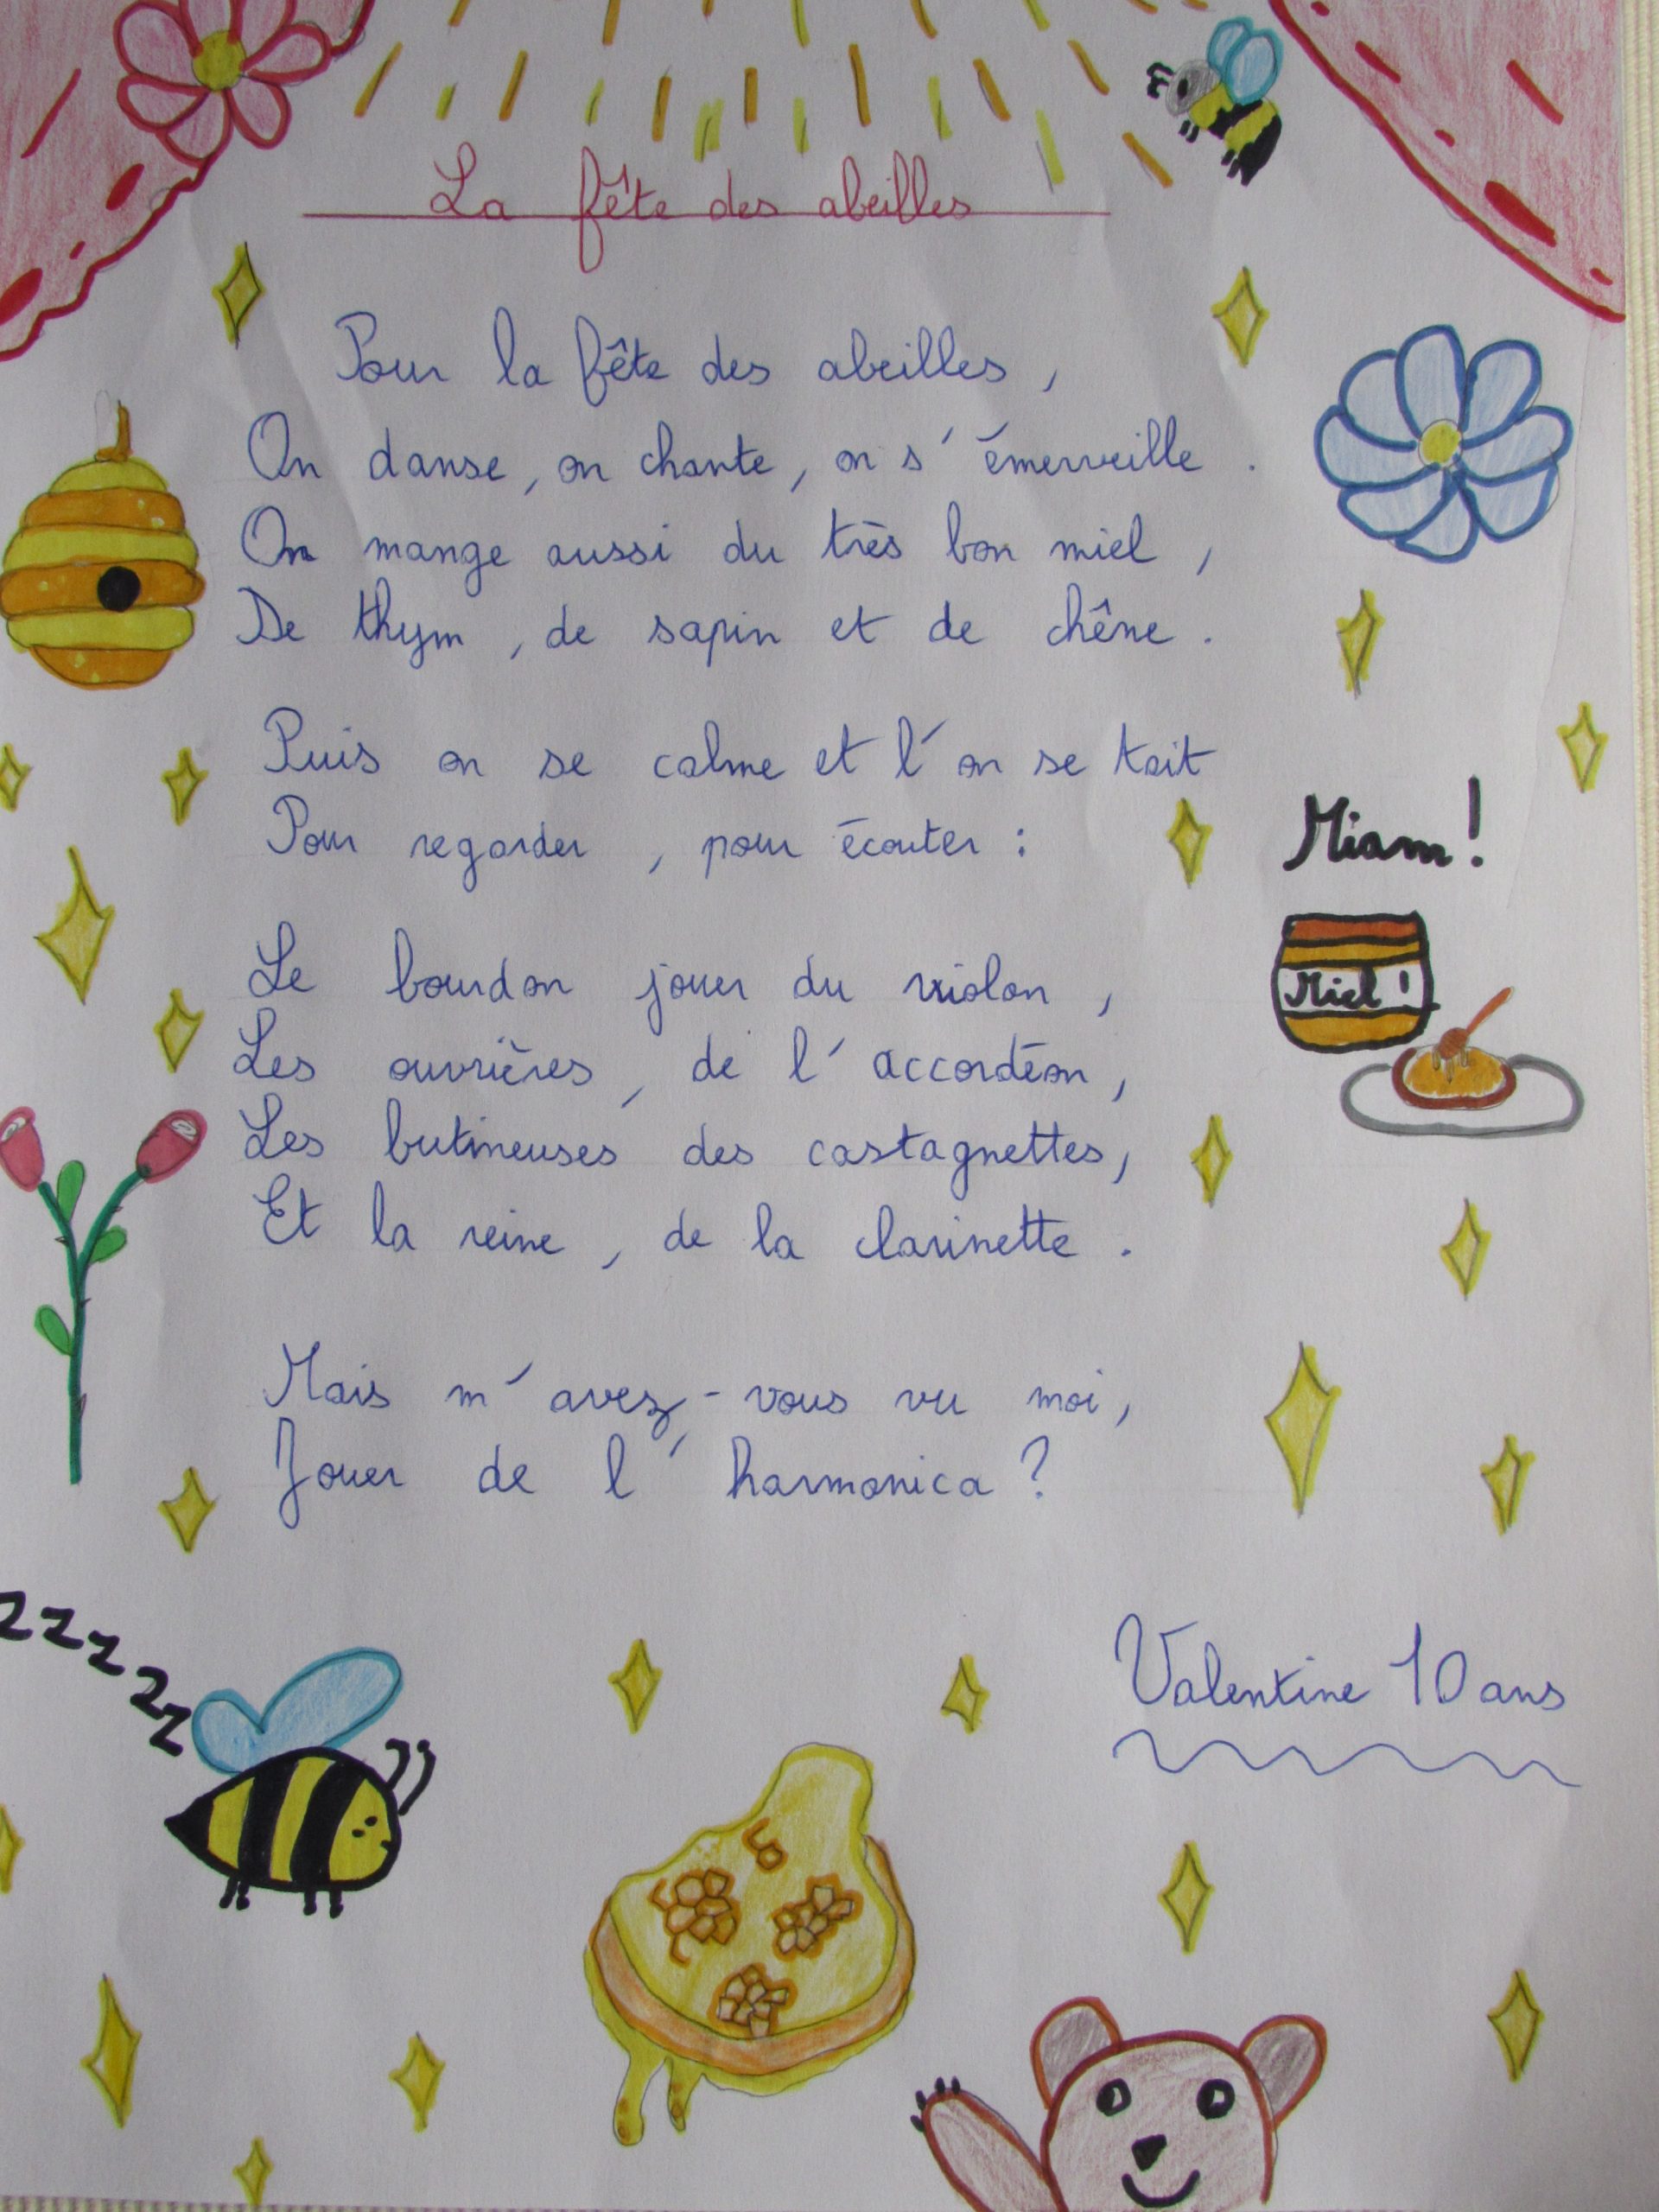 La fête des abeilles
Pour la fête des abeilles,
On danse, on chante, on s'émerveille.
On mange aussi du très bon miel,
De thym, de sapin et de chêne.
Puis on se calme et l'on se tait
Pour regarder, pour écouter :
Miam!
Le bourdon jouer du violon,
Miel !
Les ouvrières, de l'accordéon,
Les butineuses des castagnettes,
Et la reine, de la clarinette.
Mais m'avez-vous vu moi,
Jouer de l'harmonica ?
zzzzz
Valentine 10 ans